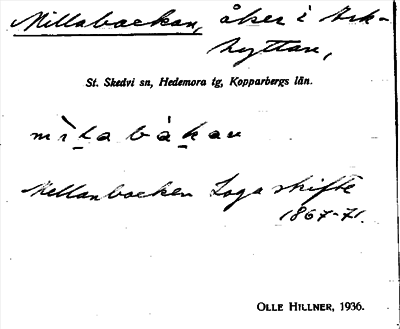 Millabackan, åker i Ark-
hyttan,
St. Skedvi sn, Hedemora tg, Kopparbergs län.
mìlabàkan
Mellanbacken Laga skifte
1867-71.
OLLE HILLNER, 1936.